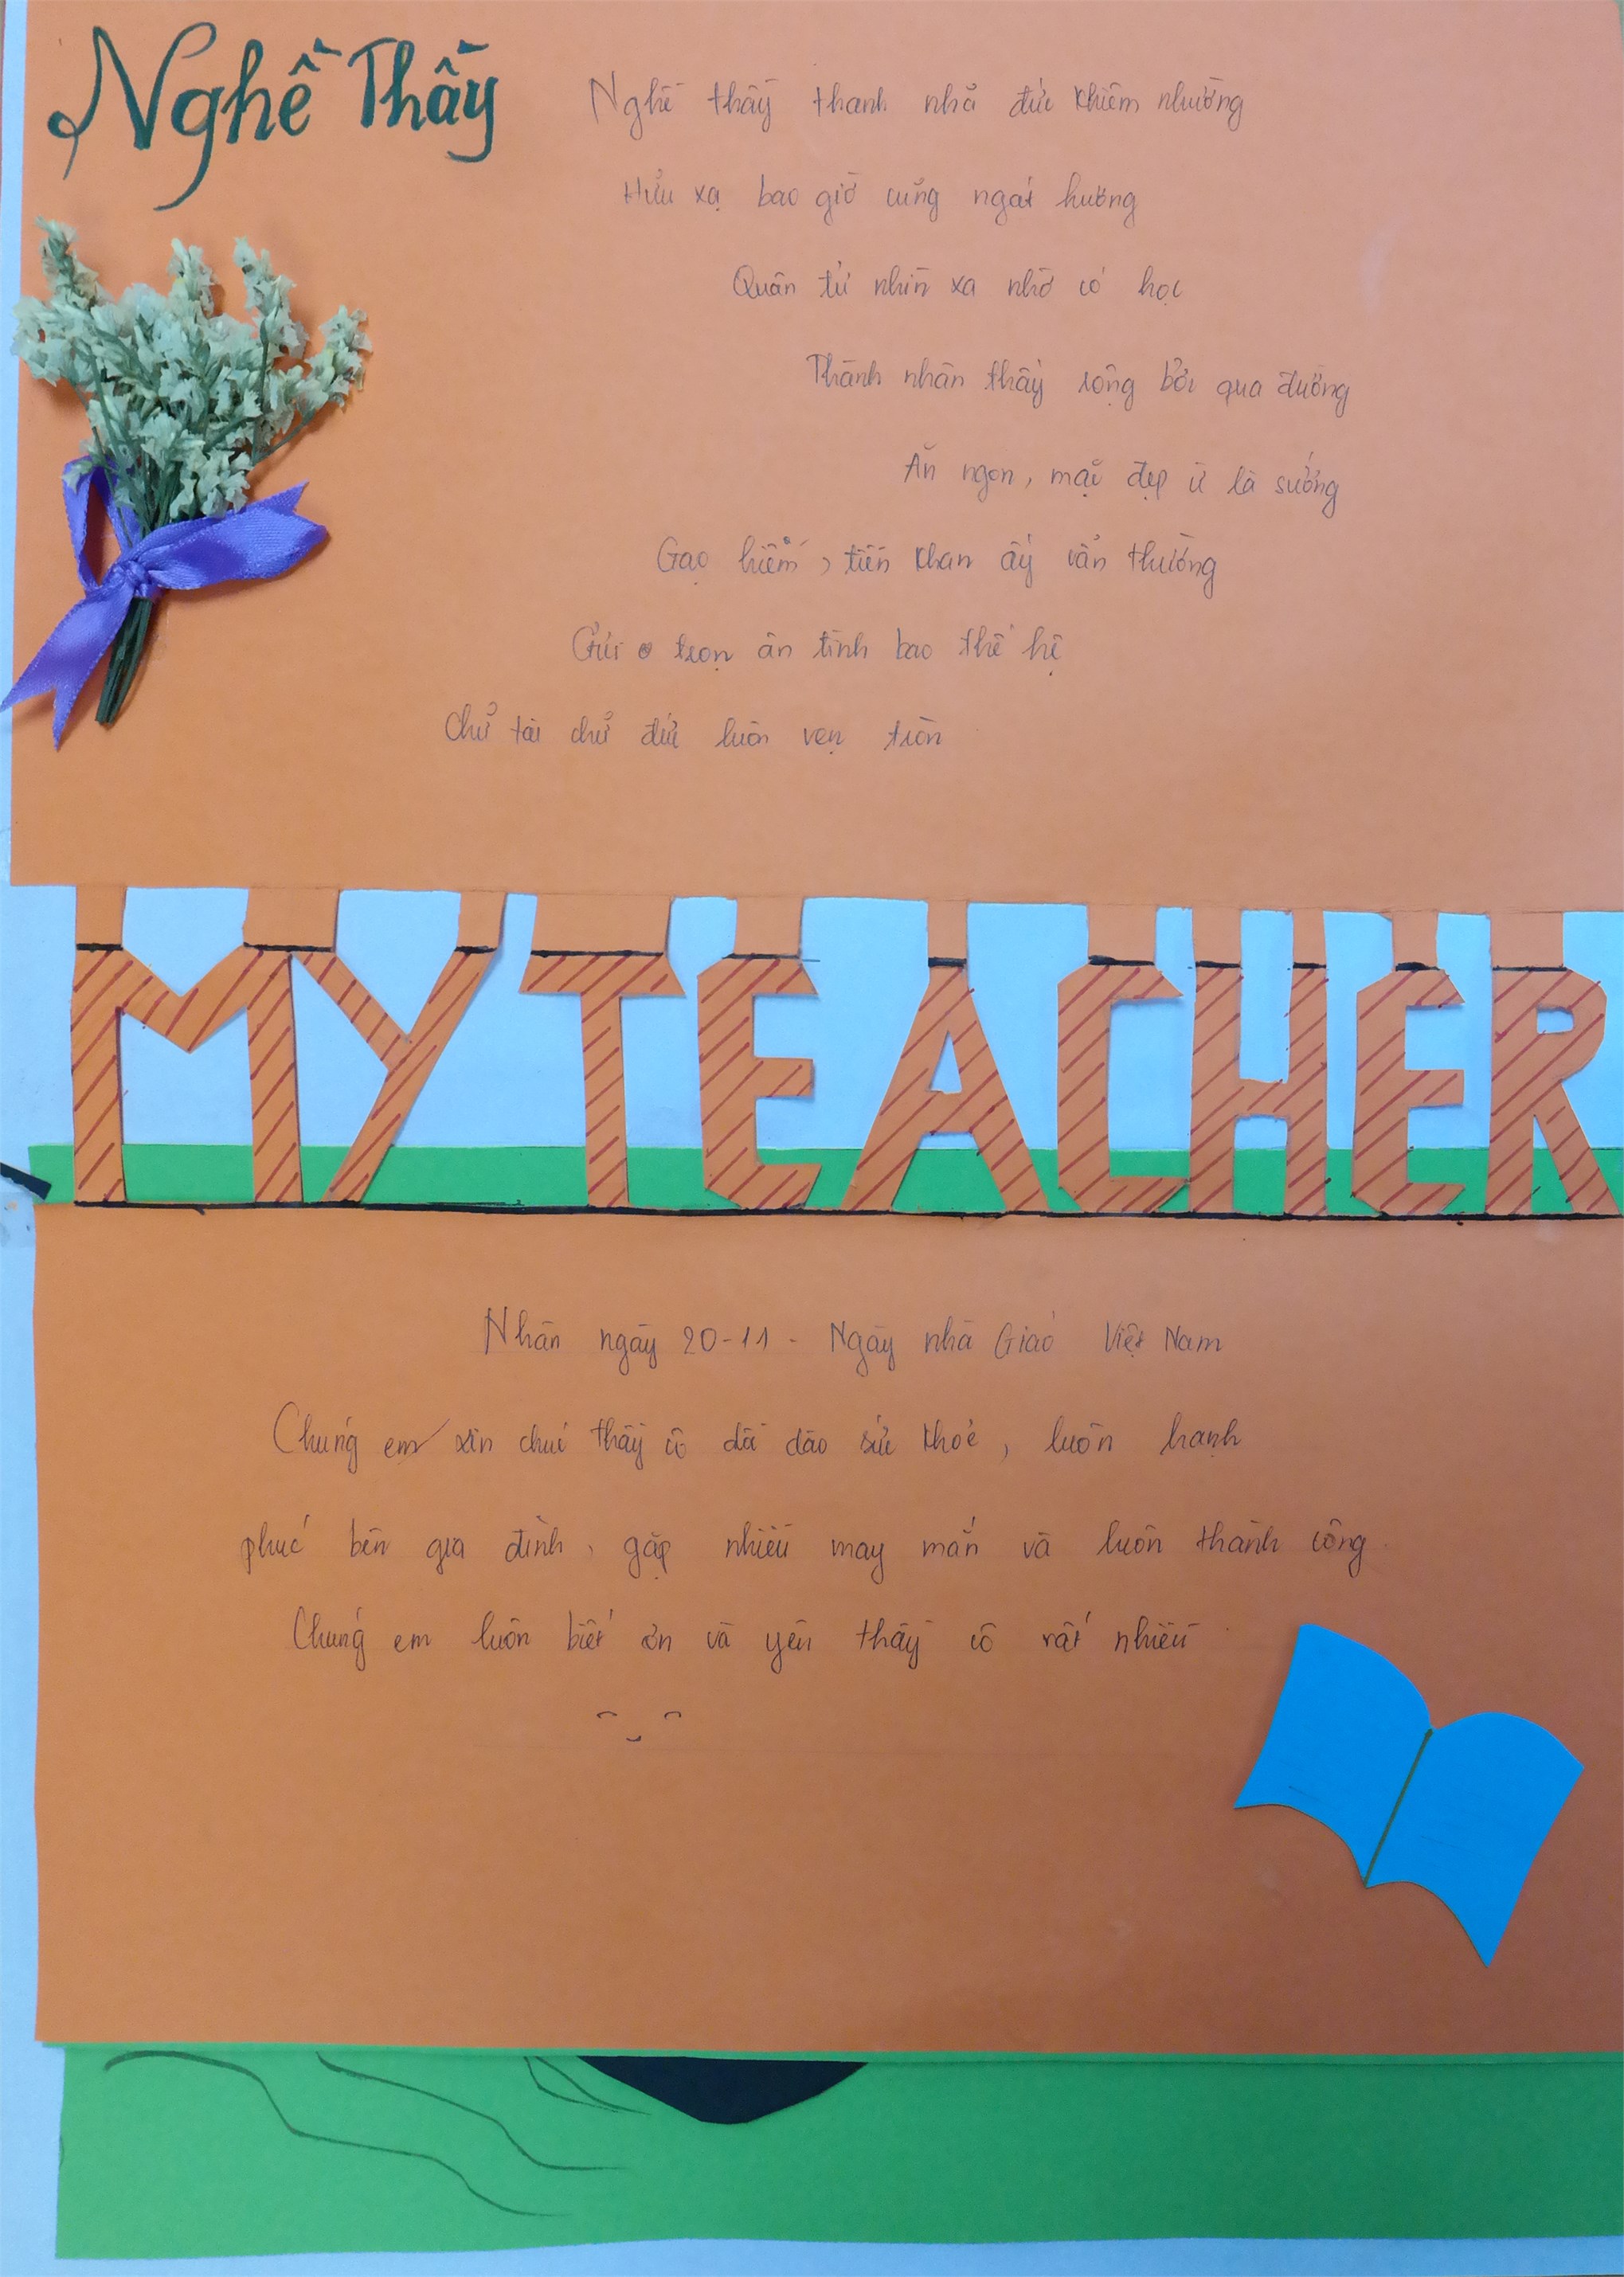 Nghề Thầy
Nghề thầy thanh nhã đức khiêm nhường
Hữu xạ bao giờ cũng ngát hương
Quân tử nhìn xa nhờ có học
Thánh nhân thấy rộng bởi qua đường
Ăn ngon, mặc đẹp ừ là sướng
Gạo hiếm, tiền khan ấy vẫn thường
Gửi trọn ân tình bao thế hệ
Chữ tài chữ đức luôn vẹn tròn
MY TEACHER
Nhân ngày 20-11 - Ngày nhà Giáo Việt Nam
Chúng em xin chúc thầy cô dồi dào sức khoẻ, luôn hạnh
phúc bên gia đình, gặp nhiều may mắn và luôn thành công.
Chúng em luôn biết ơn và yêu thầy cô rất nhiều.